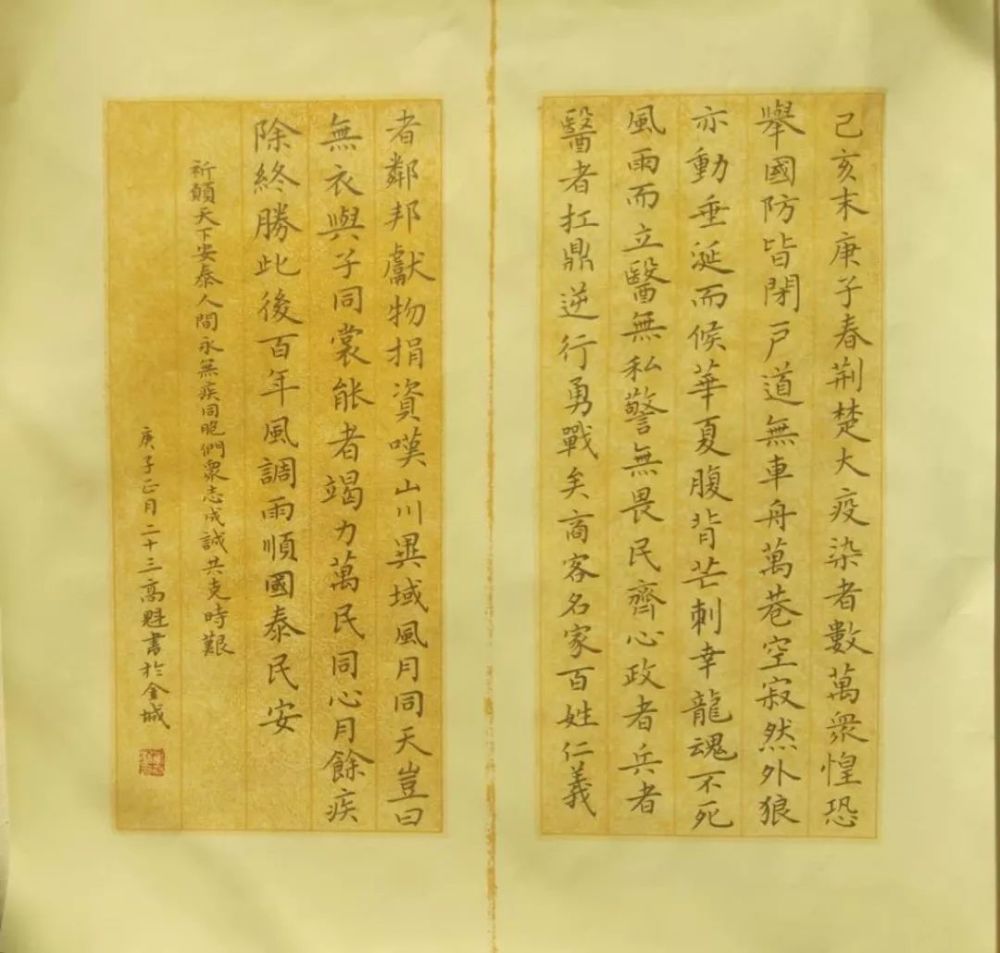 己亥末庚子春荆楚大疫染者數萬衆惶恐
舉國防皆閉戸道無車舟萬巷空寂然外狼
亦動垂涎而候華夏腹背芒刺幸龍魂不死
風雨而立醫無私警無畏民齊心政者兵者
醫者扛鼎逆行勇戰矣商客名家百姓仁義
者鄰邦獻物捐資嘆山川異域風月同天豈曰
無衣與子同裳能者竭力萬民同心月餘疾
除終勝此後百年風調雨順國泰民安
祈願天下安泰人間永無疾同胞們衆志成誠共克時艱
庚子正月二十三高魁書於金城